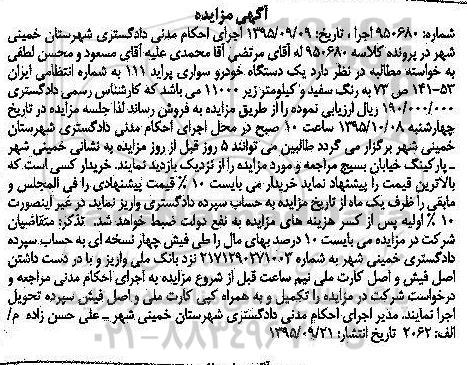 آگهی مزایده
شماره: ۹۵۰۶۸۰ اجرا، تاریخ: ۱۳۹۵/۰۹/۰۹ اجرای احکام مدنی دادگستری شهرستان خمینی
شهر در پرونده کلاسه ۹۵۰۶۸۰ له آقای مرتضی آقا محمدی علیه آقای مسعود و محسن لطفی
به خواسته مطالبه در نظر دارد یک دستگاه خودرو سواری پراید ۱۱۱ به شماره انتظامی ایران
۵۳-۱۴۱ ص ۷۳ به رنگ سفید و کیلومتر زیر ۱۱۰۰۰ می باشد که کارشناس رسمی دادگستری
۱۹۰/۰۰۰/۰۰۰ ریال ارزیابی نموده را از طریق مزایده به فروش رساند لذا جلسه مزایده در تاریخ
چهارشنبه ۱۳۹۵/۱۰/۰۸ ساعت ۱۰ صبح در محل اجرای احکام مدنی دادگستری شهرستان
خمینی شهر برگزار می گردد طالبین می توانند ۵ روز قبل از روز مزایده به نشانی خمینی شهر
ـ پارکینگ خیابان بسیج مراجعه و مورد مزایده را از نزدیک بازدید نمایند. خریدار کسی است که
بالاترین قیمت را پیشنهاد نماید خریدار می بایست ۱۰ ٪ قیمت پیشنهادی را فی المجلس و
مابقی را ظرف یک ماه از تاریخ مزایده به حساب سپرده دادگستری واریز نماید. در غیر اینصورت
۱۰ ٪ اولیه پس از کسر هزینه های مزایده به نفع دولت ضبط خواهد شد. تذکر: متقاضیان
شرکت در مزایده می بایست ۱۰ درصد بهای مال را طی فیش چهار نسخه ای به حساب سپرده
دادگستری خمینی شهر به شماره ۲۱۷۱۲۹۰۲۷۱۰۰۳ نزد بانک ملی واریز و با در دست داشتن
اصل فیش و اصل کارت ملی نیم ساعت قبل از شروع مزایده به اجرای احکام مدنی مراجعه و
درخواست شرکت در مزایده را تکمیل و به همراه کپی کارت ملی و اصل فیش سپرده تحویل
اجرا نمایند. مدیر اجرای احکام مدنی دادگستری شهرستان خمینی شهر ـ علی حسن زاده م/
الف: ۲۰۶۲ تاریخ انتشار: ۱۳۹۵/۰۹/۲۱